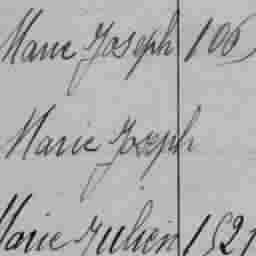 Marie Joseph 106
Marie Joseph
Marie Julien 1521